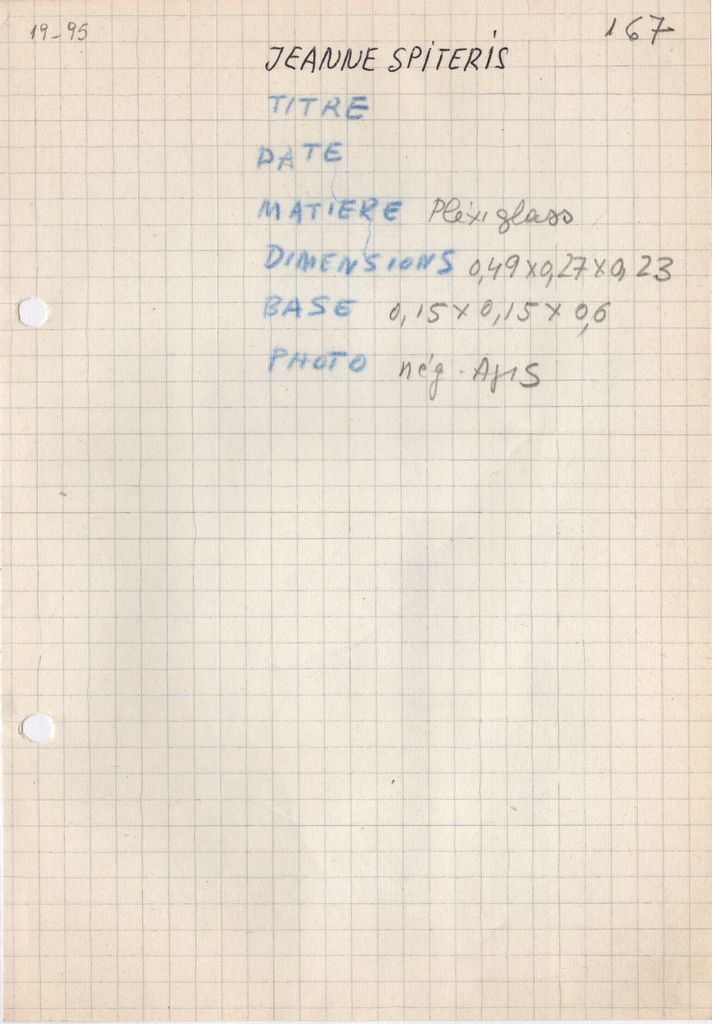 19-95
167
JEANNE SPITERIS
TITRE
DATE
MATIERE Pléxiglass
DIMENSIONS 0,49x0,27x0,23
BASE 0,15x0,15x0,6
PHOTO nég.